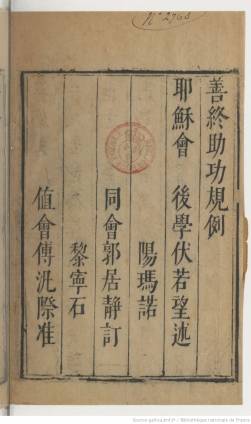 Nº 2768
善終助功規例
耶穌會 後學伏若望述
陽瑪諾
同會郭居靜訂
黎寧石
值會傅汎際准
Source gallica.bnf.fr / Bibliothèque nationale de France